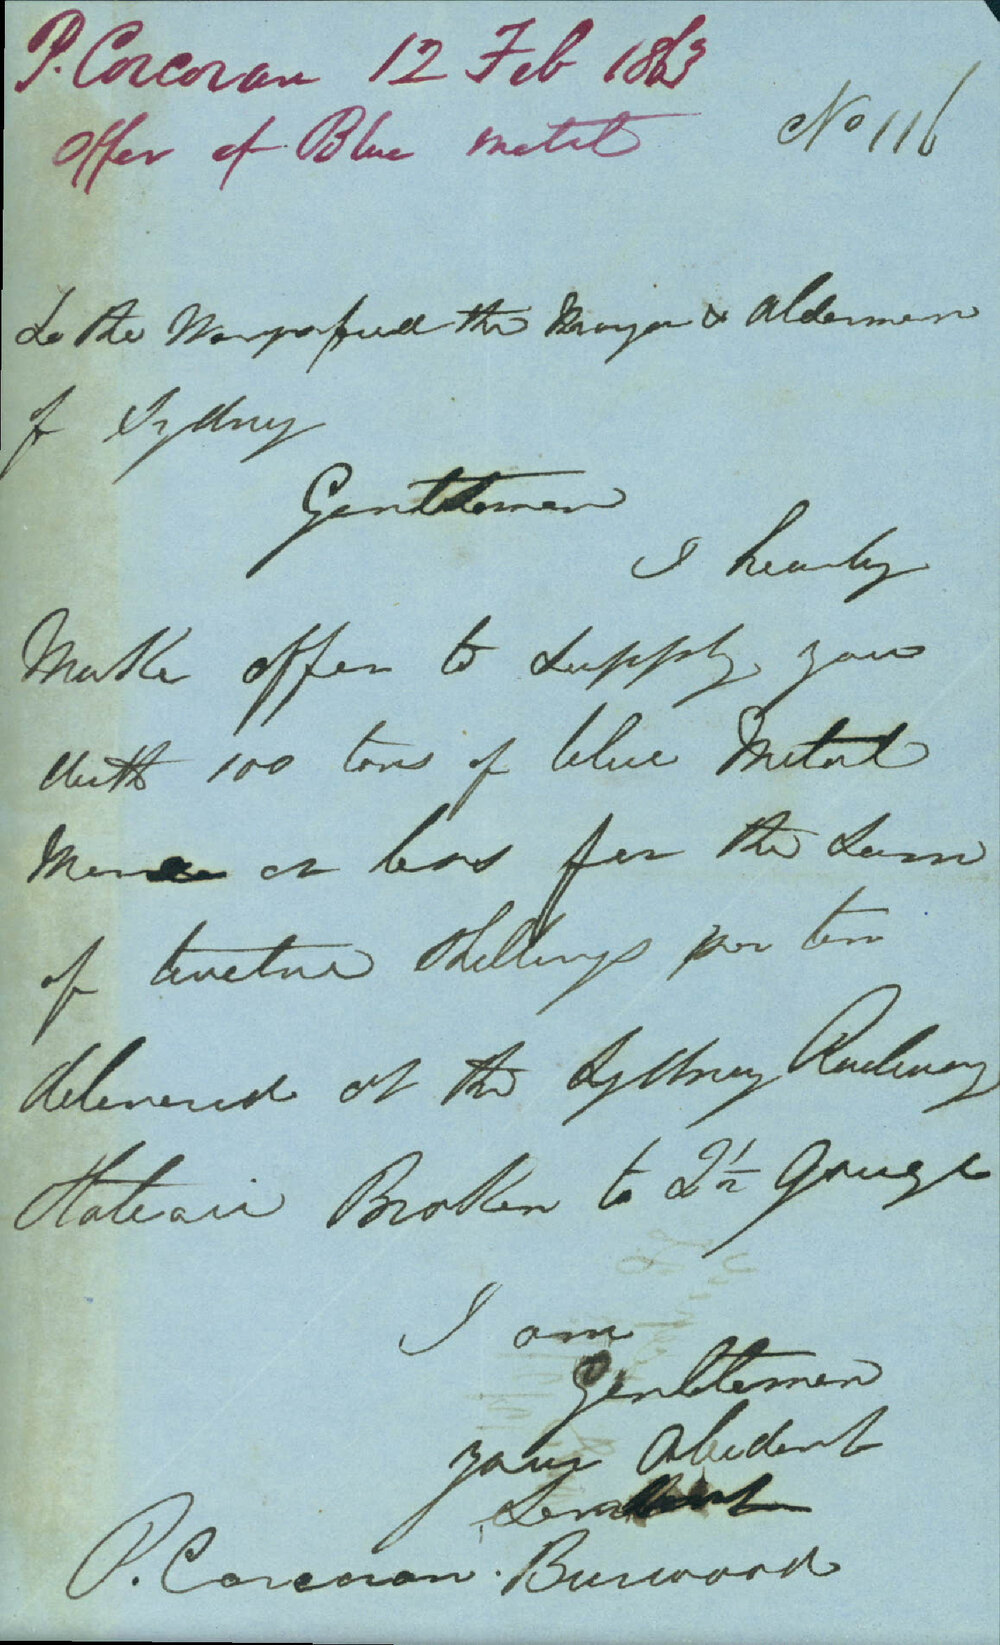 P. Corcoran 12 Feb 1863
Offer of Blue metal
No 116
To the Worshipfull the Mayor & Aldermen
of Sydney
Gentlemen
I hearby
Make offer to Supply you
with 100 tons of blue Metal
More or less for the Sum
of twelve Shillings per ton
delivered at the Sydney Railway
Stateain Broken to 2½ Gauge
I am
Gentlemen
your Obident
Servant
P. Corcoran. Burwood